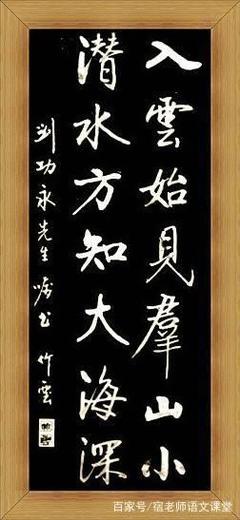 入雲始見羣山小
潜水方知大海深
刘功永先生嘱书 竹雲
百家号/宿老师语文课堂